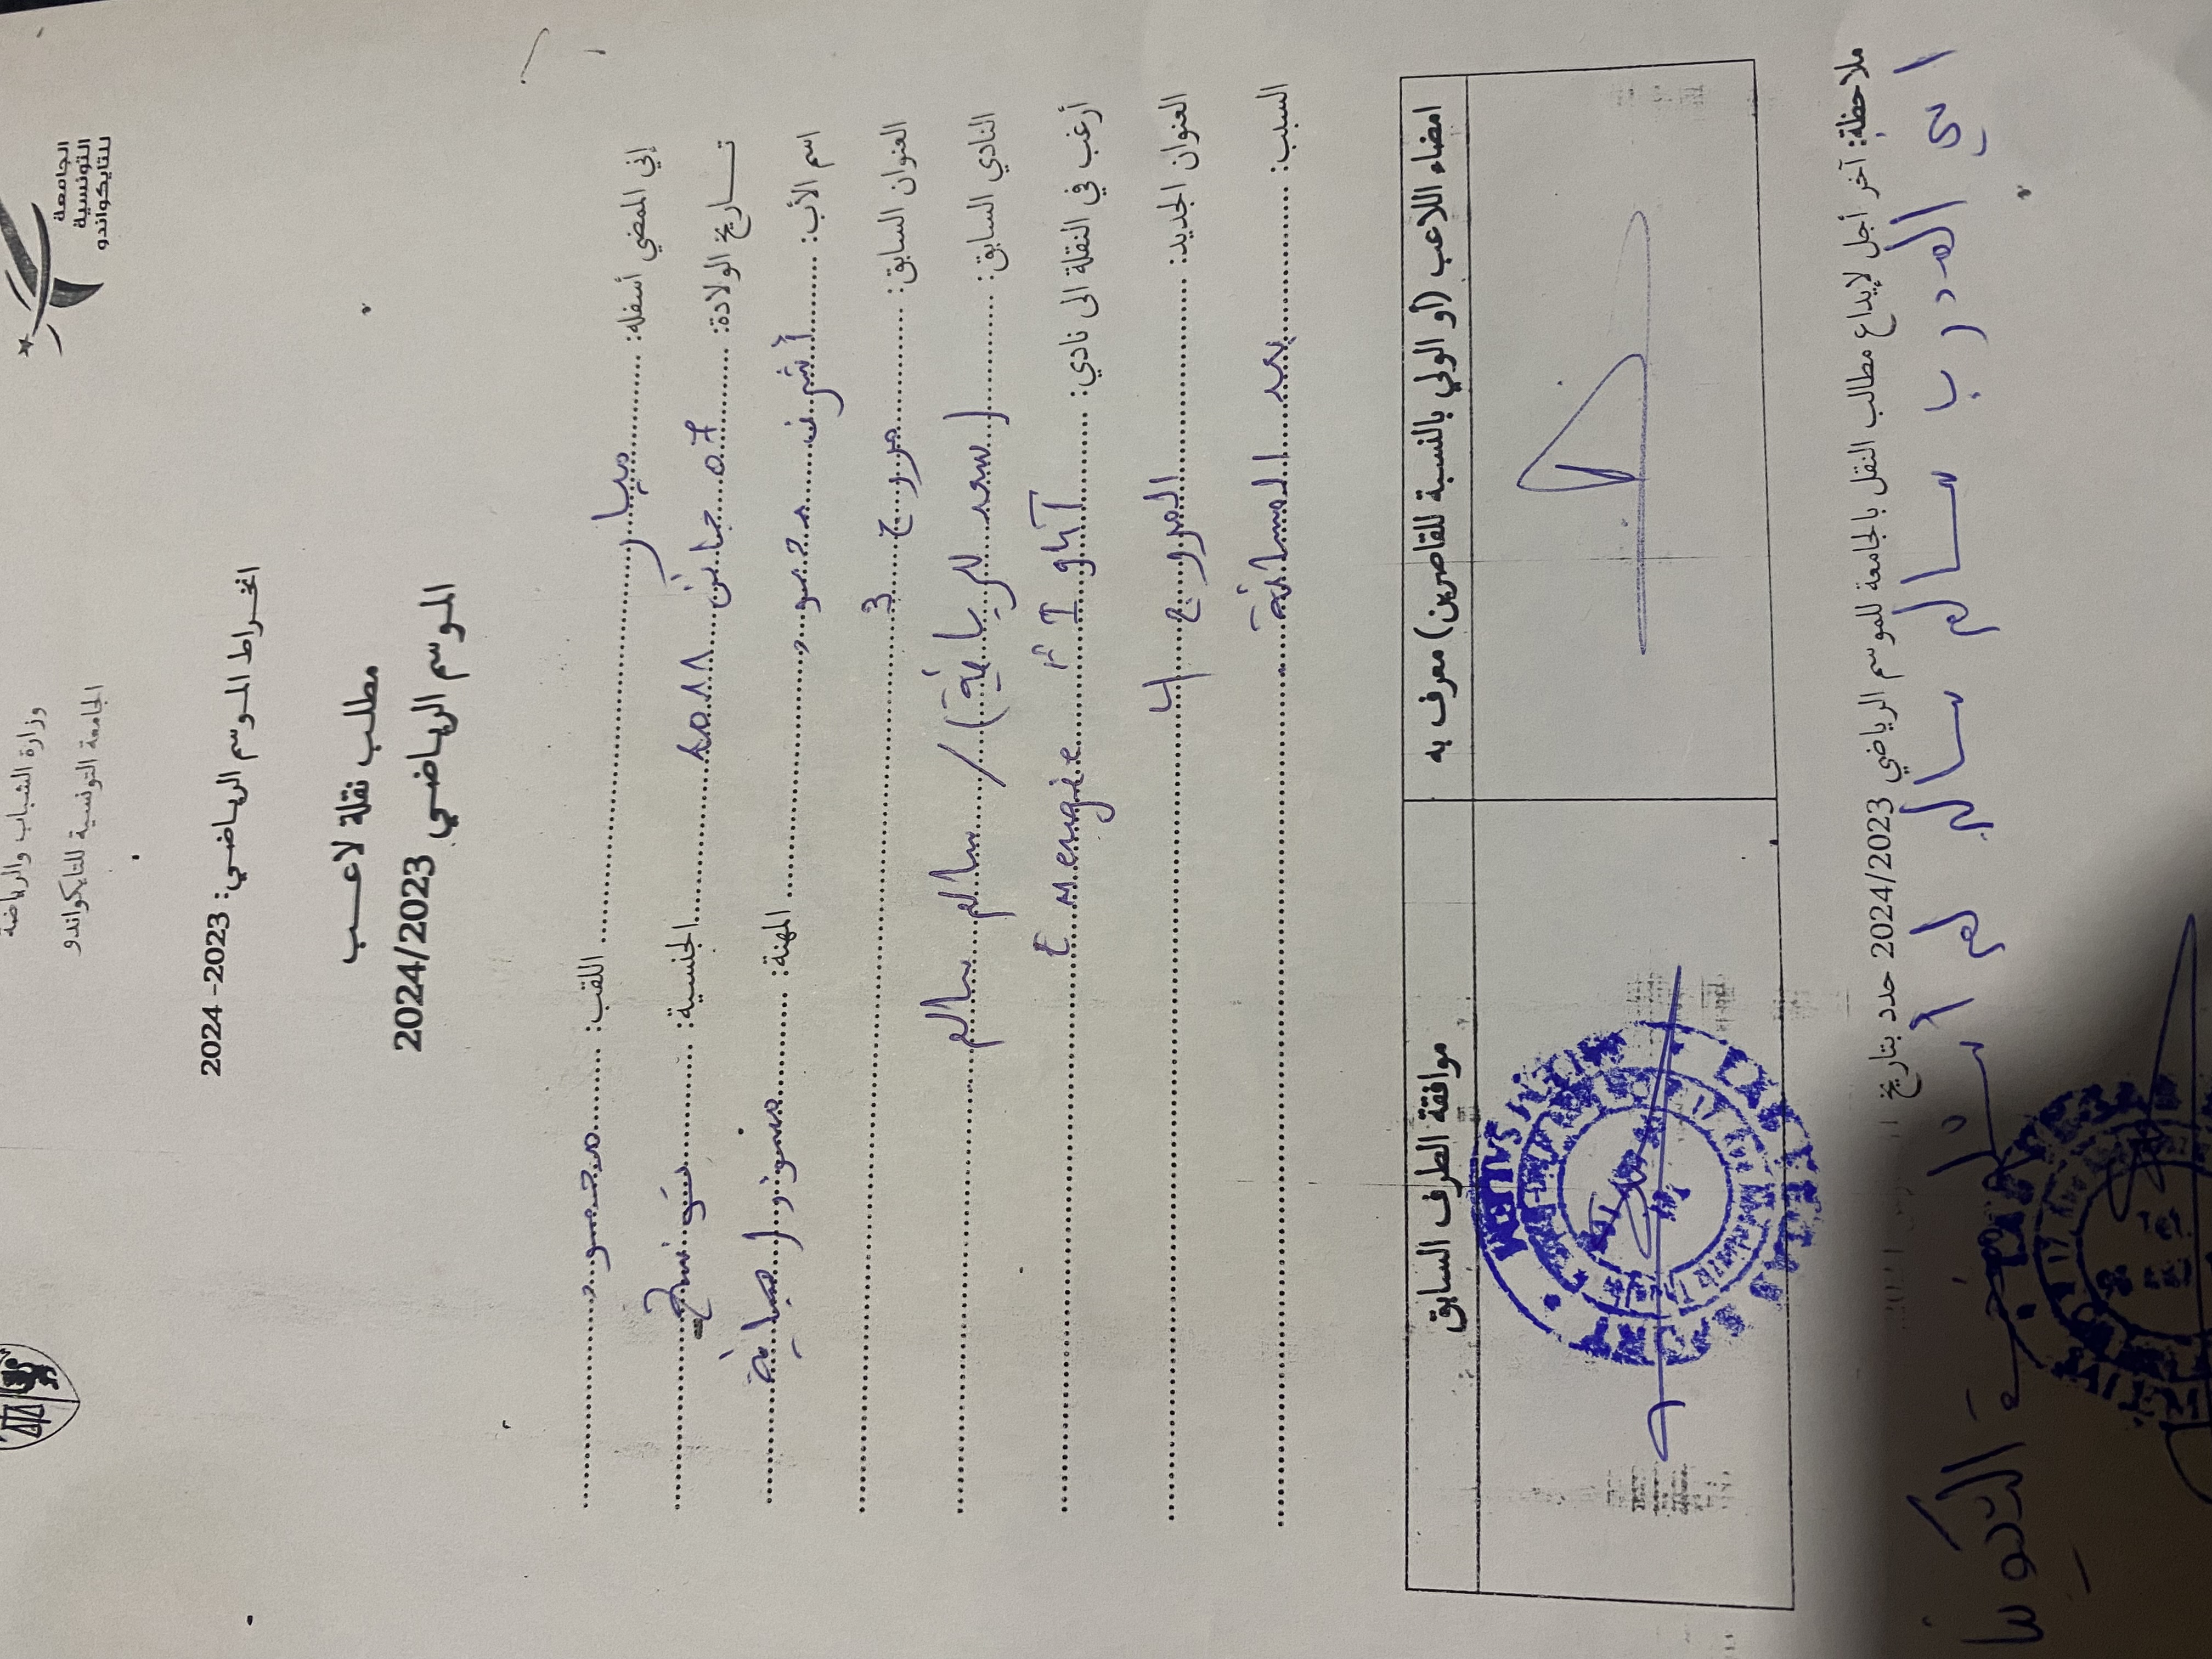 وزارة الشباب والرياضة
الجامعة التونسية للتايكواندو
الجامعة
التونسية
للتايكواندو
انخراط الموسم الرياضي: 2023- 2024
مطلب نقلة لاعب
الموسم الرياضي 2024/2023
إني الممضي أسفله: ميار اللقب: محمود
تاريخ الولادة: 07 جانفي الجنسية: تونسية
اسم الأب: أشرف محمود المهنة:
العنوان السابق: مروج 3
النادي السابق: (سعد للرياضة) / سالم سالم
أرغب في النقلة الى نادي: Energie
العنوان الجديد: المروج 4
السبب: بعد المسافة
امضاء اللاعب (أو الولي بالنسبة للقاصرين) معرف به
موافقة الطرف السابق
ملاحظة: آخر أجل لإيداع مطالب النقل بالجامعة للموسم الرياضي 2024/2023 حدد بتاريخ
المدرب سالم سالم لم